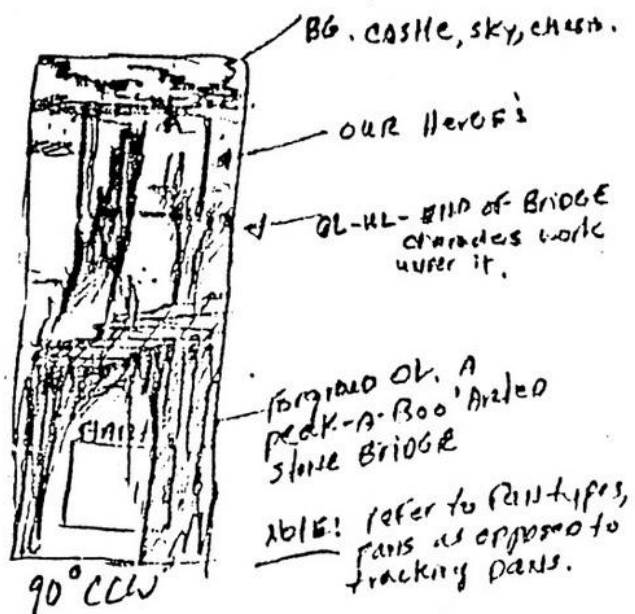 BG. CASTLE, SKY, CHASM.
OUR HEROE'S
OL-UL- END OF BRIDGE
characters work
under it.
OL. A
peak-A-Boo
stone BRIDGE
NOTE! refer to Pan types,
Pans as opposed to
tracking pans.
90° CCW